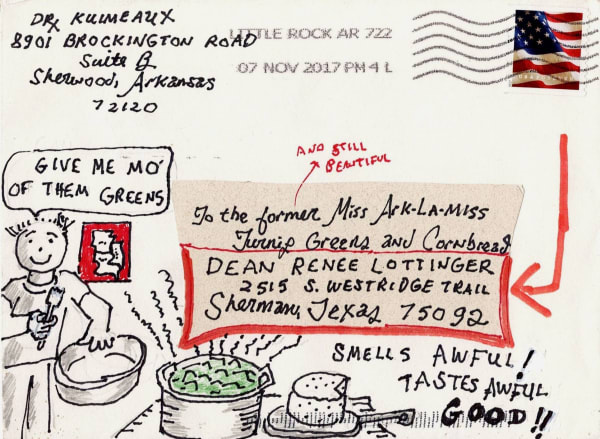 DRx KUIMEAUX
8901 BROCKINGTON ROAD
Suite B
Sherwood, Arkansas
72120
LITTLE ROCK AR 722
07 NOV 2017 PM 4 L
AND STILL
BEAUTIFUL
GIVE ME MO'
OF THEM GREENS
To the former Miss ARK-LA-MISS
Turnip Greens and Cornbread
DEAN RENEE LOTTINGER
2515 S. WESTRIDGE TRAIL
Sherman, Texas 75092
SMELLS AWFUL!
TASTES AWFUL
GOOD!!